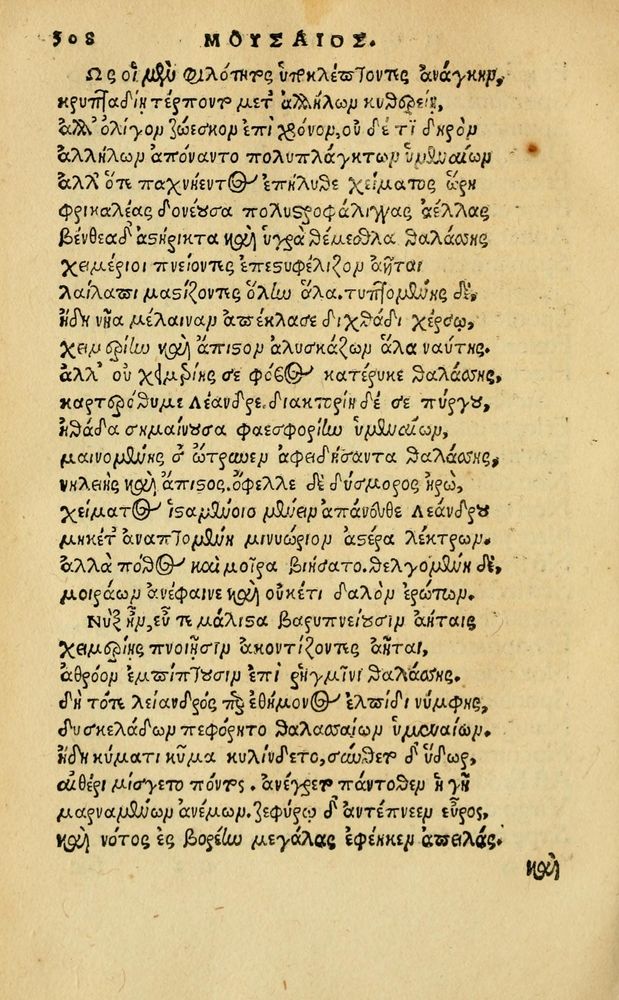 508 ΜΟΥΣΑΙΟΣ.
Ως οἱ μὲν φιλότητος ὑποκλέπτοντες ἀνάγκην,
κρυπταδίην τέρποντο μετ' ἀλλήλων κυθερείην,
ἀλλ' ὀλίγον ζώεσκον ἐπὶ χρόνον, οὐ δέ τι δηρὸν
ἀλλήλων ἀπόναντο πολυπλάγκτων ὑμεναίων
ἀλλ' ὅτε παχνήεντος ἐπήλυθε χείματος ὥρη
φρικαλέας δονέουσα πολυστροφάλιγγας ἀέλλας
βένθεα δ' ἀστήρικτα καὶ ὑγρὰ θέμεθλα θαλάσσης
χειμέριοι πνείοντες ἐπεστυφέλιζον ἀῆται
λαίλαπι μαστίζοντες ὅλην ἅλα. τυπτομένης δὲ,
ἤδη νῆα μέλαιναν ἀπέκλασε διχθάδι χέρσῳ,
χειμερίην καὶ ἄπιστον ἀλυσκάζων ἅλα ναύτης.
ἀλλ' οὐ χειμερίης σε φόβος κατέρυκε θαλάσσης,
καρτερόθυμε Λέανδρε. διακτορίη δέ σε πύργου,
ἠθάδα σημαίνουσα φαεσφορίην ὑμεναίων,
μαινομένης σ' ὤτρυνεν ἀφειδήσαντα θαλάσσης,
νηλειὴς καὶ ἄπιστος. ὄφελλε δὲ δύσμορος ἡρὼ,
χείματος ἱσταμένοιο μένειν ἀπάνουθε Λεάνδρου
μηκέτ' ἀναπτομένη μινυώριον ἀστέρα λέκτρων.
ἀλλὰ πόθος καὶ μοῖρα βιήσατο. θελγομένη δὲ,
μοιράων ἀνέφαινε καὶ οὐκέτι δαλὸν ἐρώτων.
Νὺξ ἦν, εὖτε μάλιστα βαρυπνείουσιν ἀήταις
χειμερίης πνοιῇσιν ἀκοντίζοντες ἀῆται,
ἀθρόον ἐμπίπτουσιν ἐπὶ ῥηγμῖνι θαλάσσης.
δὴ τότε λείανδρός περ ἐθήμονος ἐλπίδι νύμφης,
δυσκελάδων πεφόρητο θαλασσαίων ὑμεναίων.
ἤδη κύματι κῦμα κυλίνδετο, σύνθετο δ' ὕδωρ,
αἰθέρι μίσγετο πόντος. ἀνέγρετο πάντοθεν ἡ γῆ
μαρναμένων ἀνέμων. ζεφύρῳ δ' ἀντέπνεεν εὖρος,
καὶ νότος ἐς βορέην μεγάλας ἐφέηκεν ἀπειλάς.
καὶ